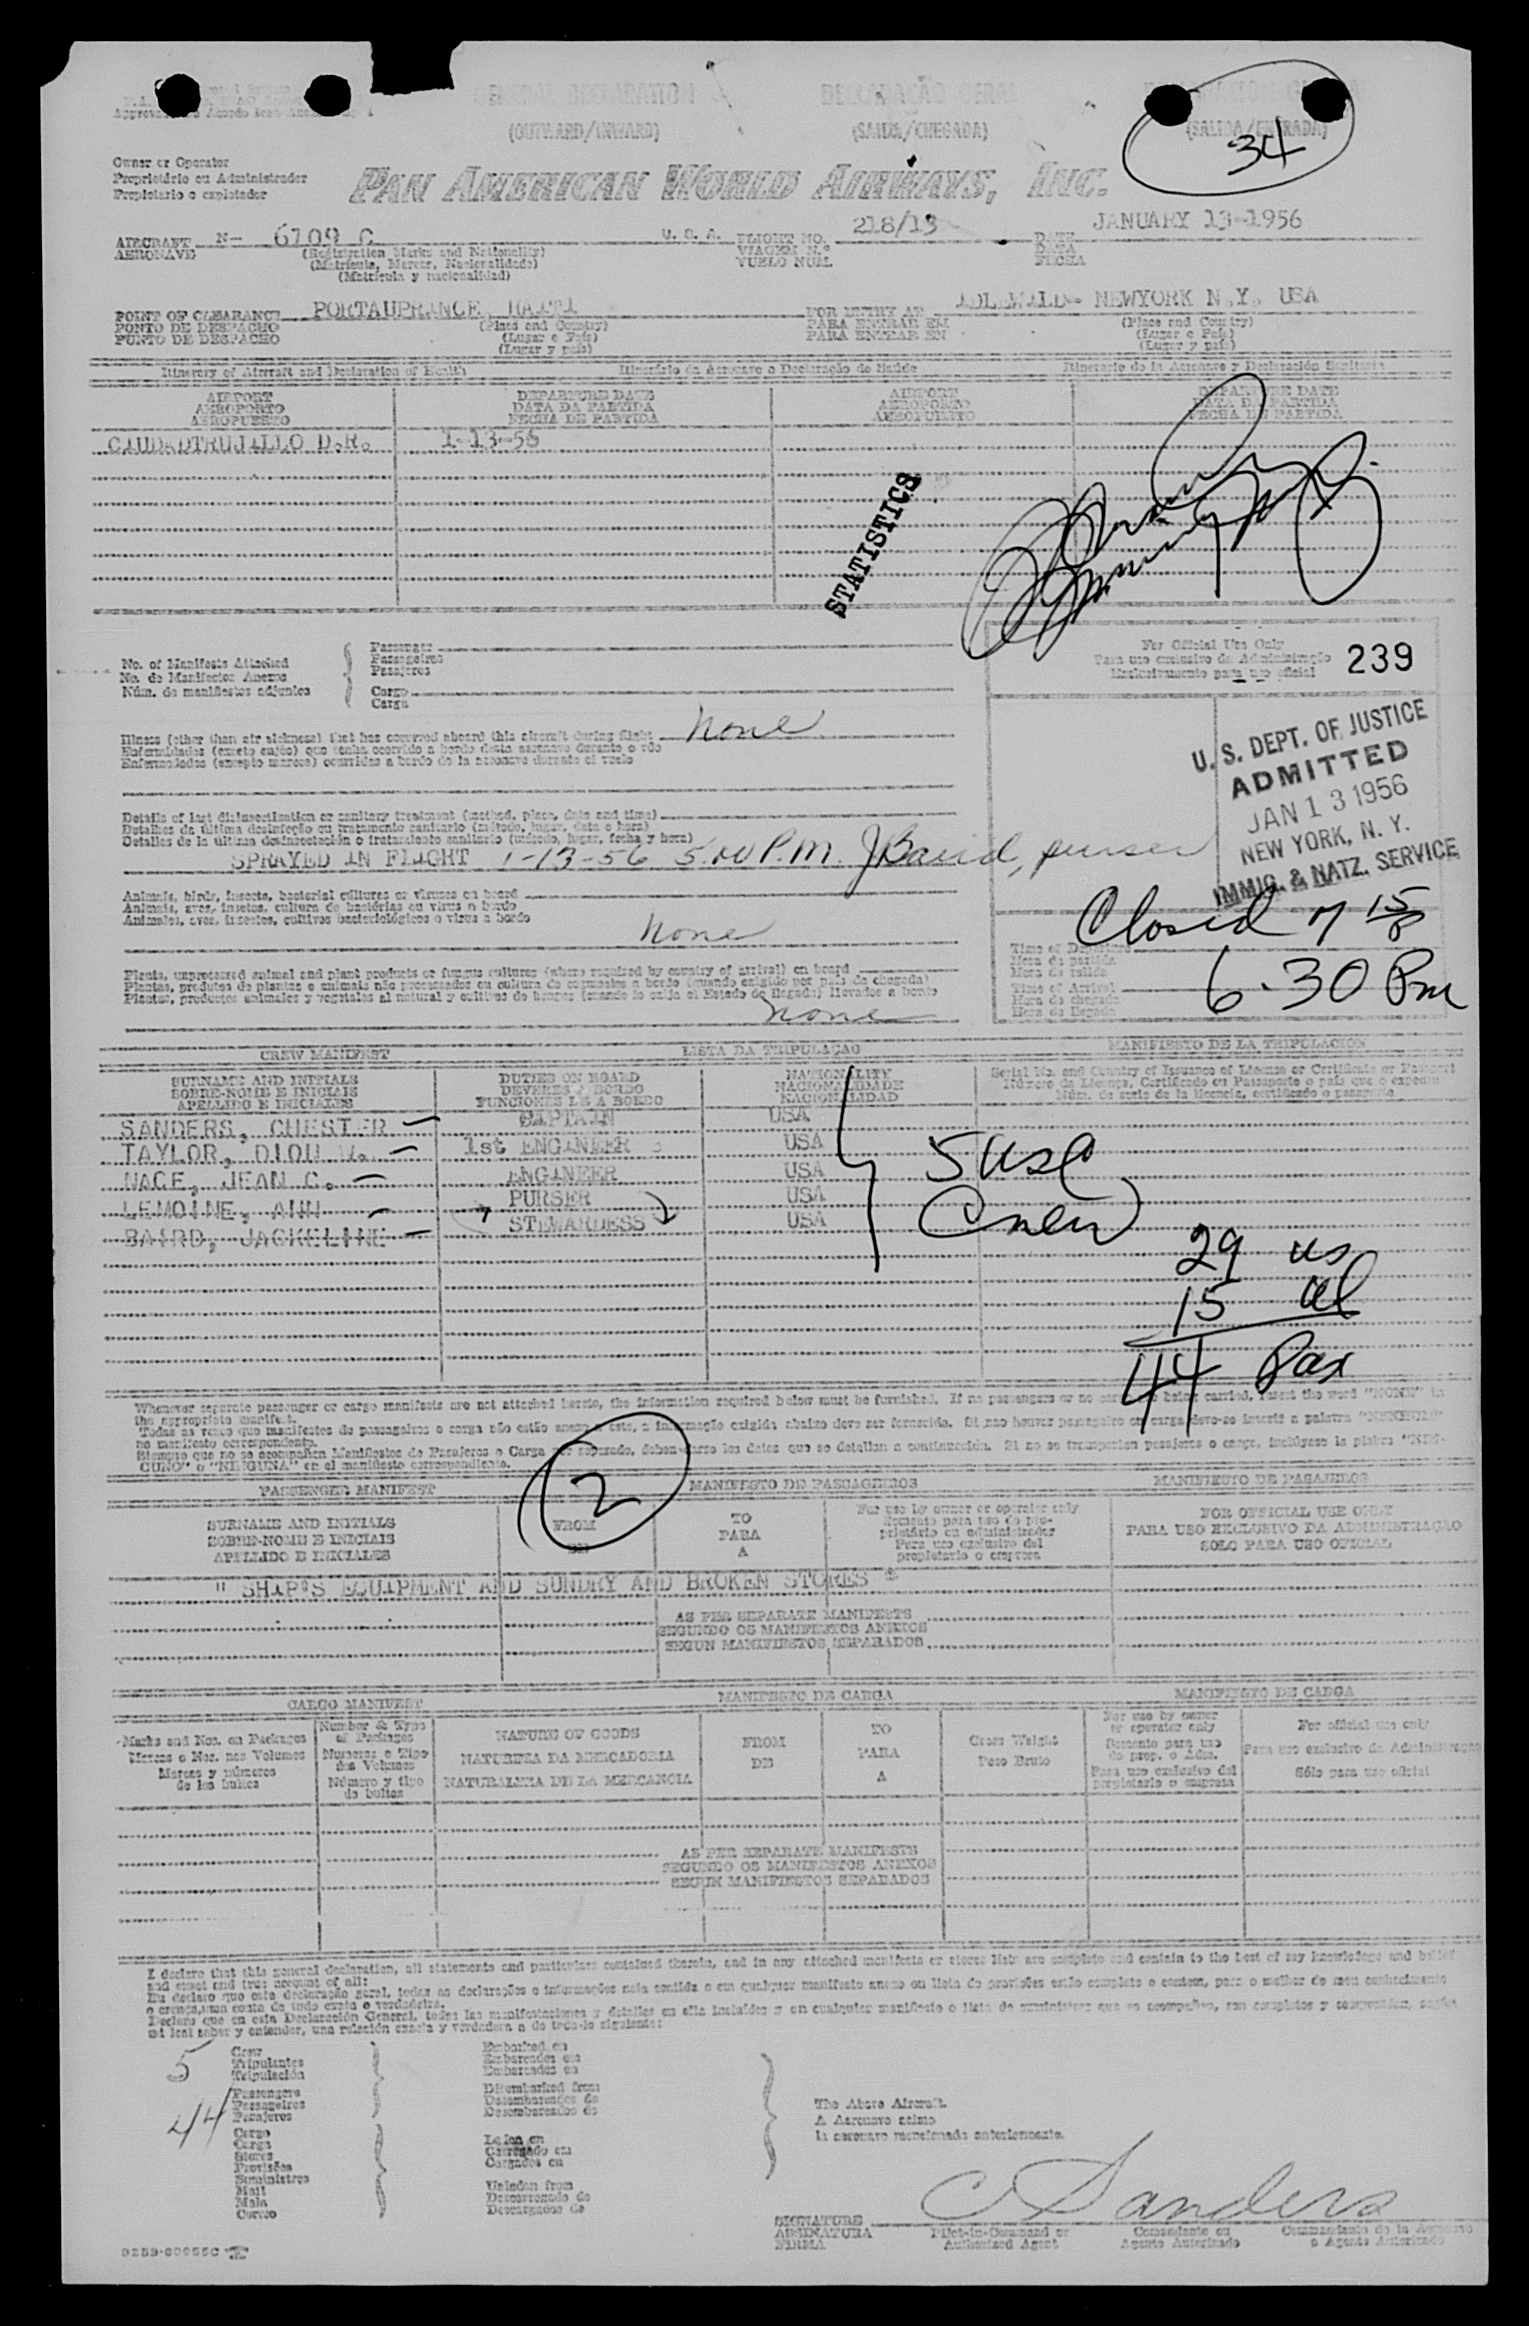 GENERAL DECLARATION
DECLARAÇÃO GERAL
(OUTWARD/INWARD)
(SAIDA/CHEGADA)
(SALIDA/ENTRADA)
34
Owner or Operator
Proprietário ou Administrador
Propietario o explotador
PAN AMERICAN WORLD AIRWAYS, INC.
AIRCRAFT N- 6109 C U. S. A. FLIGHT NO. 218/13 DATE JANUARY 13-1956
AERONAVE (Registration Marks and Nationality) VIAGEM N.º DATA
(Matrícula, Marcas, Nacionalidade) VUELO NUM. FECHA
(Matrícula y nacionalidad)
POINT OF CLEARANCE PORTAUPRINCE, HAITI FOR ENTRY AT IDLEWILD- NEWYORK N.Y. USA
PONTO DE DESPACHO (Place and Country) PARA ENTRAR EM (Place and Country)
PUNTO DE DESPACHO (Lugar e País) PARA ENTRAR EN (Lugar e País)
(Lugar y país) (Lugar y país)
Itinerary of Aircraft and Declaration of Health Itinerário da Aeronave e Declaração de Saúde Itinerario de la Aeronave y Declaración Sanitaria
AIRPORT DEPARTURE DATE AIRPORT DEPARTURE DATE
AEROPORTO DATA DA PARTIDA AEROPORTO DATA DA PARTIDA
AEROPUERTO FECHA DE PARTIDA AEROPUERTO FECHA DE PARTIDA
CIUDADTRUJILLO D.R. 1-13-56
STATISTICS
No. of Manifests Attached
No. de Manifestos Anexos
Núm. de manifiestos adjuntos
Passenger
Passageiros
Pasajeros
Cargo
Carga
For Official Use Only
Para uso exclusivo da Administração
Exclusivamente para uso oficial
239
Illness (other than air sickness) that has occurred aboard this aircraft during flight none
Enfermidades (exceto enjôo) que tenha ocorrido a bordo desta aeronave durante o vôo
Enfermedades (excepto mareos) ocurridas a bordo de la aeronave durante el vuelo
U. S. DEPT. OF JUSTICE
ADMITTED
JAN 13 1956
NEW YORK, N. Y.
IMMIG. & NATZ. SERVICE
Details of last disinsectization or sanitary treatment (method, place, date and time)
Detalhes da última desinfeção ou tratamento sanitario (método, lugar, data e hora)
Detalles de la última desinsectación o tratamiento sanitario (método, lugar, fecha y hora)
SPRAYED IN FLIGHT 1-13-56 5:00 P.M. J Baird, purser
Animals, birds, insects, bacterial cultures or viruses on board
Animais, aves, insetos, cultura de bactérias ou virus a bordo
Animales, aves, insectos, cultivos bacteriológicos o virus a bordo
none
Closed 7 15/8
Time of Departure
Hora da partida
Hora de salida
Time of Arrival 6.30 Pm
Hora da chegada
Hora de llegada
Plants, unprocessed animal and plant products or fungus cultures (where required by country of arrival) on board
Plantas, produtos de plantas e animais não processados ou cultura de cogumelos a bordo (quando exigido por país de chegada)
Plantas, productos animales y vegetales al natural y cultivos de hongos (cuando lo exija el Estado de llegada) llevados a bordo
none
CREW MANIFEST LISTA DA TRIPULAÇAO MANIFIESTO DE LA TRIPULACION
SURNAME AND INITIALS DUTIES ON BOARD NATIONALITY Serial No. and Country of Issuance of License or Certificate or Passport
SOBRE-NOME E INICIAIS DEVERES A BORDO NACIONALIDADE Número da Licença, Certificado ou Passaporte e país que o expediu
APELLIDO E INICIALES FUNCIONES DE A BORDO NACIONALIDAD Núm. de serie de la licencia, certificado o pasaporte
SANDERS, CHESTER CAPTAIN USA
TAYLOR, DION 1st ENGINEER USA
NACE, JEAN C. ENGINEER USA
LEMOINE, ANN PURSER USA
BAIRD, JACKELINE STEWARDESS USA
5 usc
Crew
29 us
15 al
44 Pax
Whenever separate passenger or cargo manifests are not attached hereto, the information required below must be furnished. If no passengers or no cargo are being carried, insert the word "NONE" in
the appropriate manifest.
2
PASSENGER MANIFEST MANIFESTO DE PASSAGEIROS MANIFIESTO DE PASAJEROS
SURNAME AND INITIALS FROM TO For use by owner or operator only FOR OFFICIAL USE ONLY
SOBRE-NOME E INICIAIS DE PARA PARA USO EXCLUSIVO DA ADMINISTRAÇAO
APELLIDO E INICIALES A SOLO PARA USO OFICIAL
" SHIP'S EQUIPMENT AND SUNDRY AND BROKEN STORES "
AS PER SEPARATE MANIFESTS
SEGUNDO OS MANIFESTOS ANEXOS
SEGUN MANIFIESTOS SEPARADOS
CARGO MANIFEST MANIFESTO DE CARGA MANIFIESTO DE CARGA
Marks and Nos. on Packages Number & Type of Packages NATURE OF GOODS FROM TO Gross Weight For use by owner or operator only For official use only
Marcas e Nos. nos Volumes Numeros e Tipo dos Volumes NATUREZA DA MERCADORIA DE PARA Peso Bruto Para uso exclusivo da Administração
Marcas y números de los bultos Número y tipo de bultos NATURALEZA DE LA MERCANCIA A Para uso exclusivo del propietario o empresa Sólo para uso oficial
AS PER SEPARATE MANIFESTS
SEGUNDO OS MANIFESTOS ANEXOS
SEGUN MANIFIESTOS SEPARADOS
I declare that this general declaration, all statements and particulars contained therein, and in any attached manifests or stores lists are complete and contain to the best of my knowledge and belief
and exact and true account of all:
5 Crew
Tripulantes
Tripulación
44 Passengers
Passageiros
Pasajeros
Cargo
Carga
Stores
Provisões
Suministros
Mail
Mala
Correo
Embarked on
Embarcados em
Embarcados en
Disembarked from
Desembarcados de
Desembarcados de
Laden on
Carregado em
Cargados en
Unladen from
Descarregado de
Descargados de
The Above Aircraft.
A Aeronave acima
la aeronave mencionada anteriormente.
C Sanders
SIGNATURE
ASSINATURA
FIRMA
Pilot-in-Command or Authorized Agent
Comandante ou Agente Autorizado
Commandante de la Aeronave o Agente Autorizado